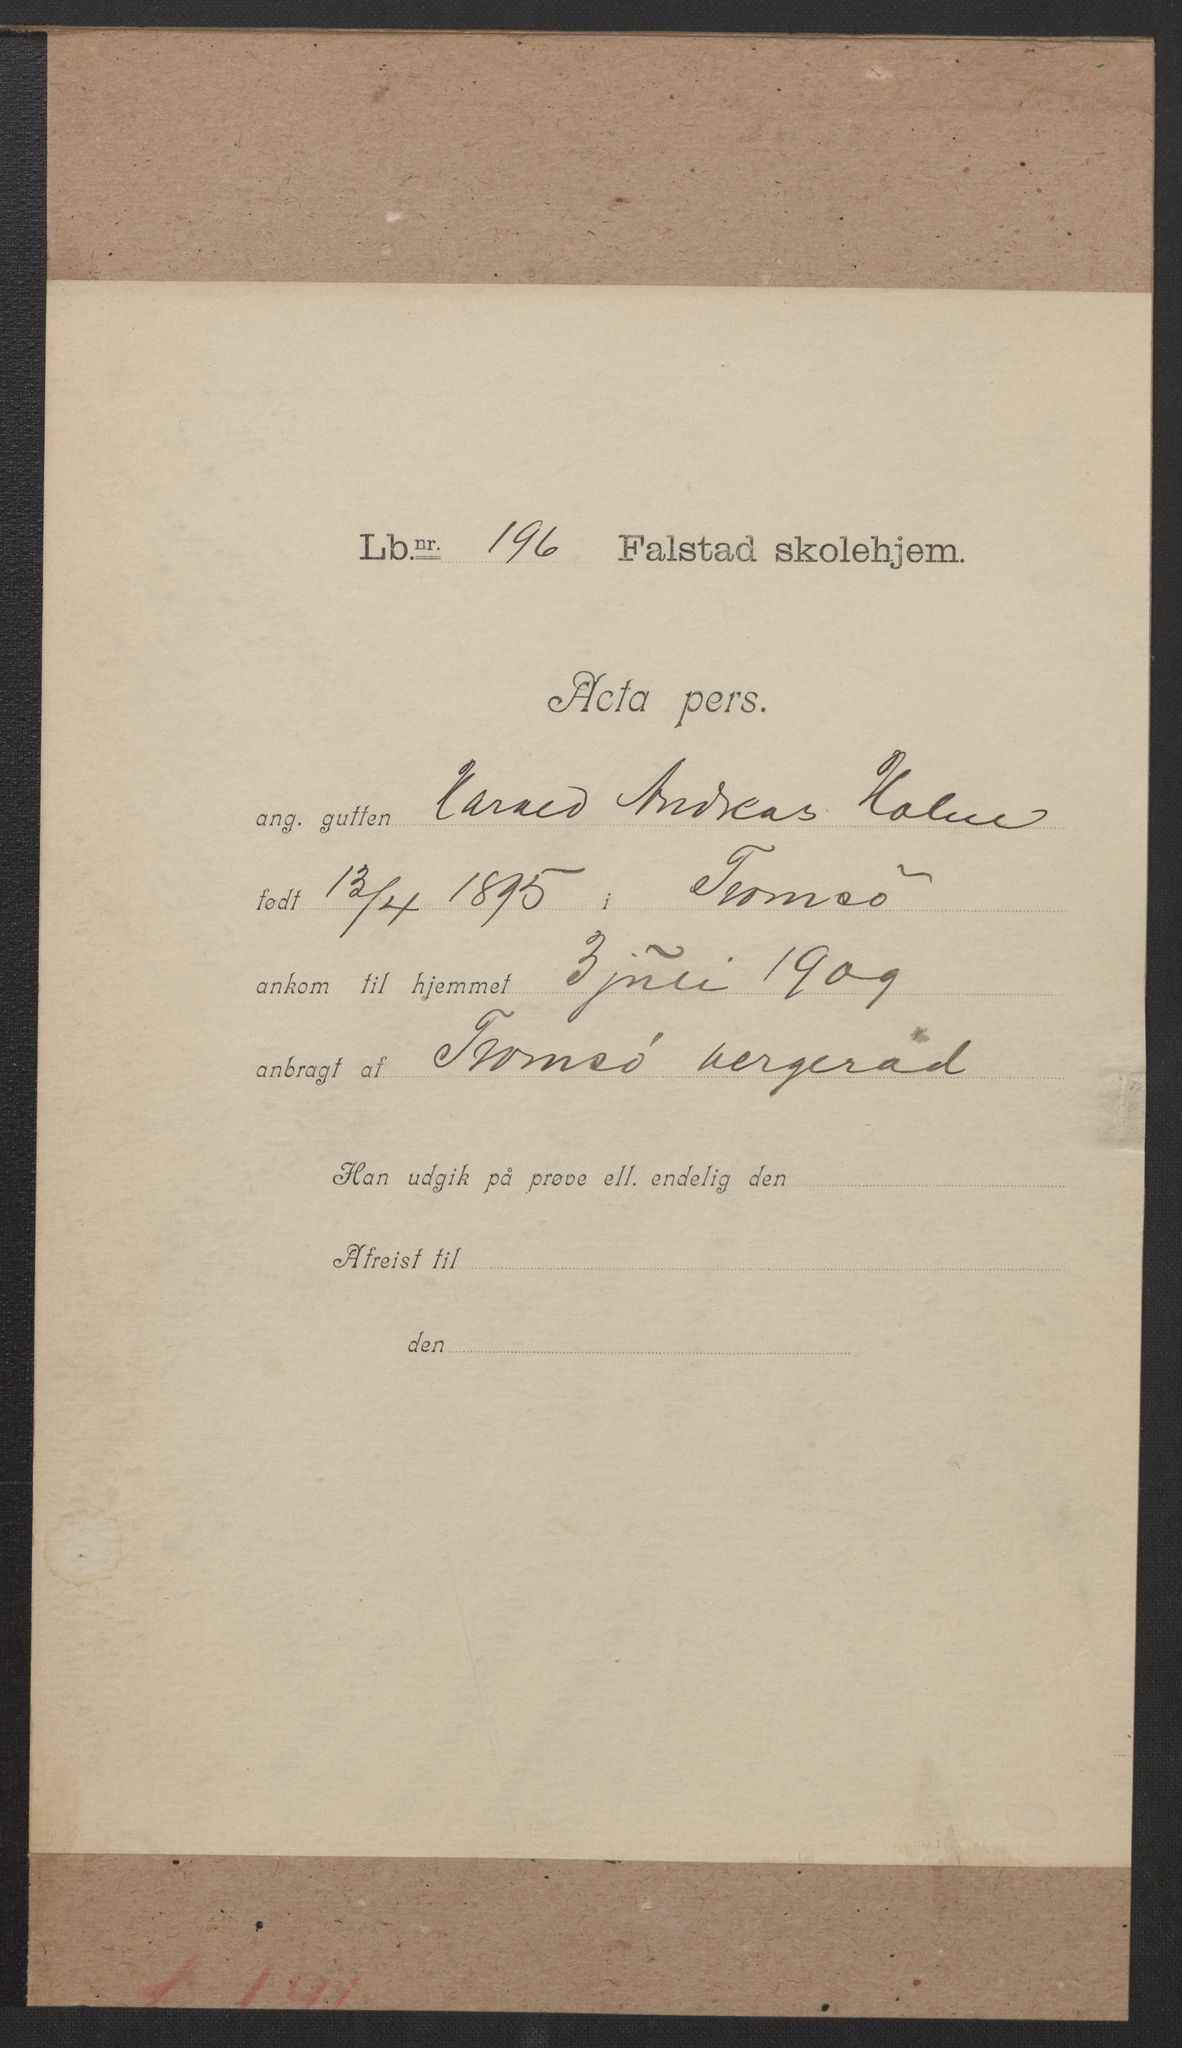 Lb.nr. 196 Falstad skolehjem.
Acta pers.
ang. gutten Harald Andreas Holm
født 13/4 1895 i Tromsö
ankom til hjemmet 3 juli 1909
anbragt af Tromsö vergeråd
Han udgik på prøve ell. endelig den
Afreist til
den